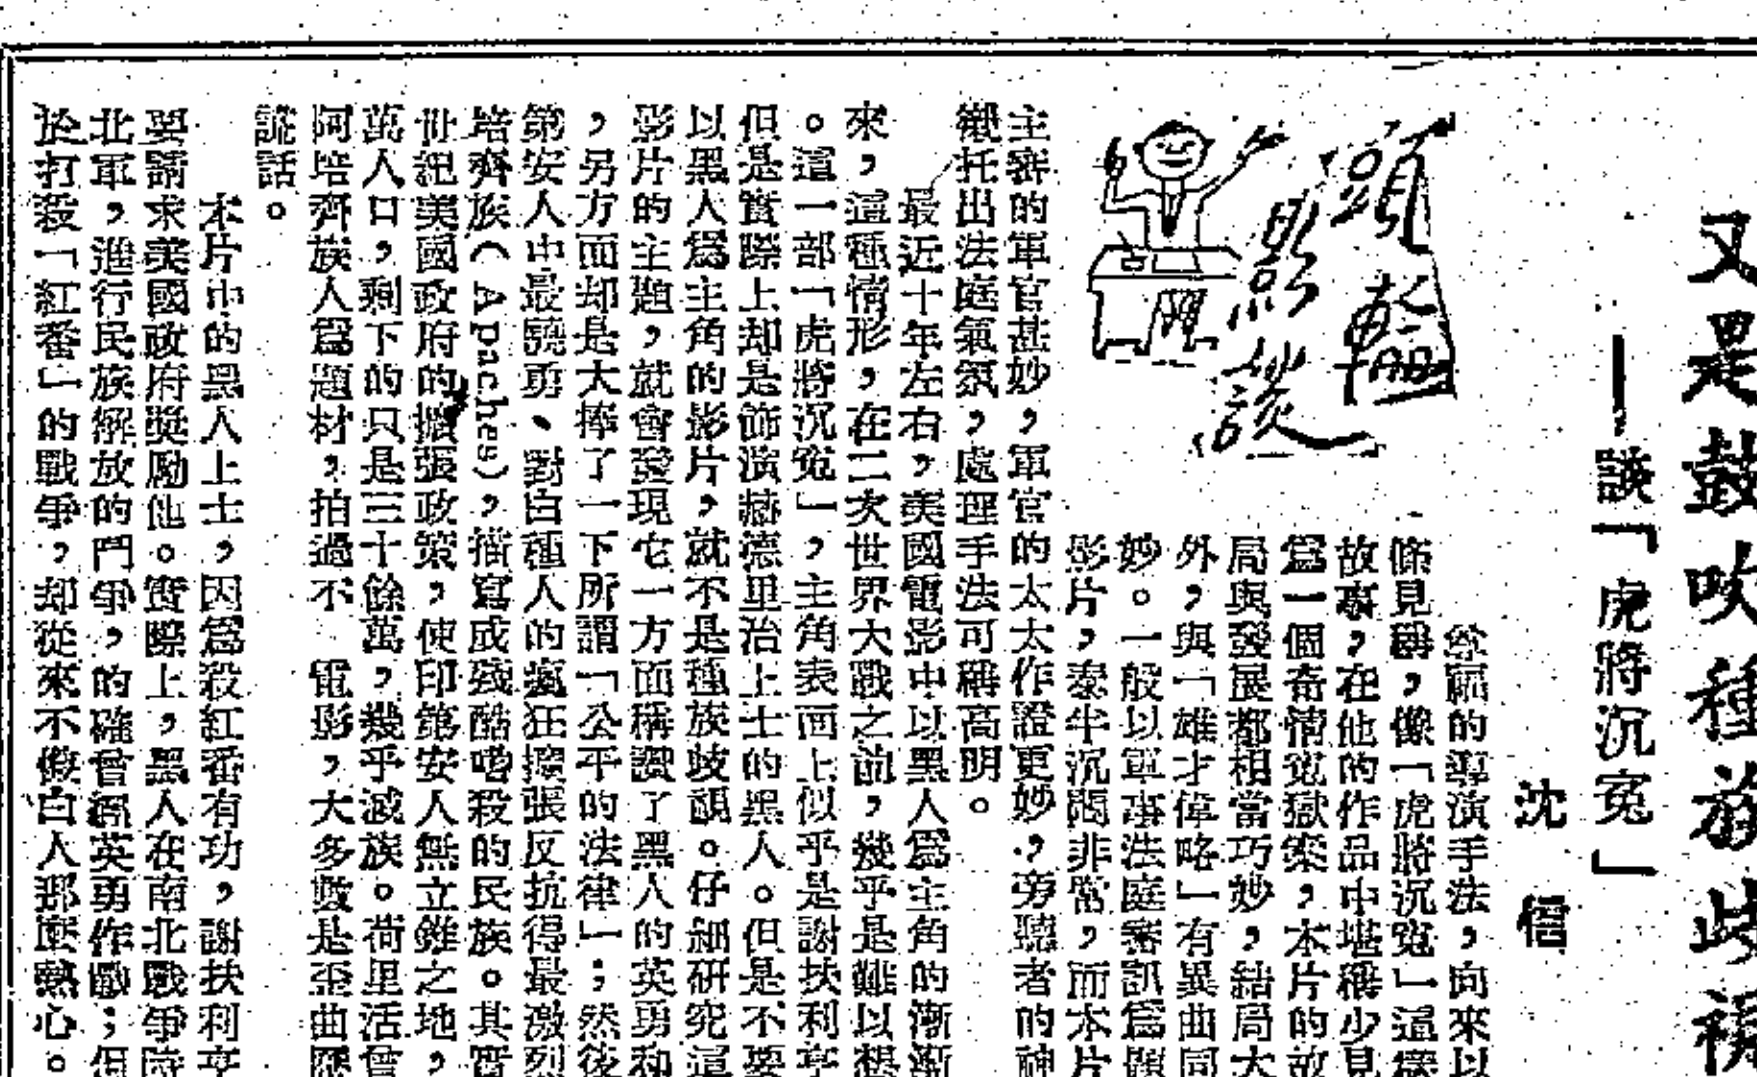 又是鼓吹種族歧視
——談「虎將沉寃」
沈信
頭輪影談
尊福的導演手法,向來以
條見稱,像「虎將沉寃」這樣
故事,在他的作品中堪稱少見
爲一個奇情寃獄案,本片的故
局與發展都相當巧妙,結局大
外,與「雄才偉略」有異曲同
妙。一般以軍事法庭審訊爲題
影片,泰半沉悶非常,而本片
主審的軍官甚妙,軍官的太太作證更妙,旁聽者的神
襯托出法庭氣氛,處理手法可稱高明。
最近十年左右,美國電影中以黑人爲主角的漸漸
來,這種情形,在二次世界大戰之前,幾乎是難以想
。這一部「虎將沉寃」,主角表面上似乎是謝扶利亨
但是實際上却是飾演赫德里治上士的黑人。但是不要
以黑人爲主角的影片,就不是種族歧視。仔細研究這
影片的主題,就會發現它一方面稱讚了黑人的英勇和
,另方面却是大捧了一下所謂「公平的法律」;然後
第安人中最驍勇、對白種人的瘋狂擴張反抗得最激烈
培齊族(Apaches),描寫成殘酷嗜殺的民族。其實
世紀美國政府的擴張政策,使印第安人無立錐之地,
萬人口,剩下的只是三十餘萬,幾乎滅族。荷里活曾
阿培齊族人爲題材,拍過不 電影,大多數是歪曲歷
謊話。
本片中的黑人上士,因爲殺紅番有功,謝扶利亨
要請求美國政府獎勵他。實際上,黑人在南北戰爭時
北軍,進行民族解放的鬥爭,的確曾經英勇作戰;但
於打殺「紅番」的戰爭,却從來不像白人那麼熱心。